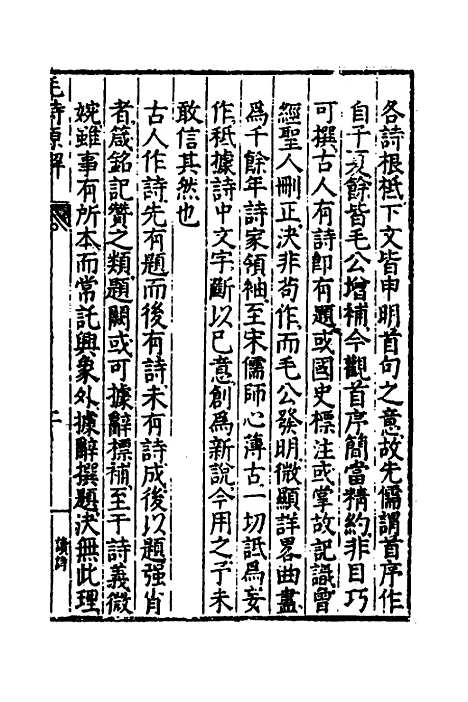 各詩根柢下文皆申明首句之意故先儒謂首序作
自子夏餘皆毛公增補今觀首序簡當精約非目巧
可撰古人有詩即有題或國史標注或掌故記識曾
經聖人刪正決非苟作而毛公發明微顯詳畧曲盡
爲千餘年詩家領袖至宋儒師心薄古一切詆爲妄
作秪據詩中文字斷以己意創爲新說今用之予未
敢信其然也
古人作詩先有題而後有詩未有詩成後以題強肖
者箴銘記贊之類題闕或可據辭標補至于詩義微
婉雖事有所本而常託興象外據辭撰題決無此理
毛詩原解
讀詩